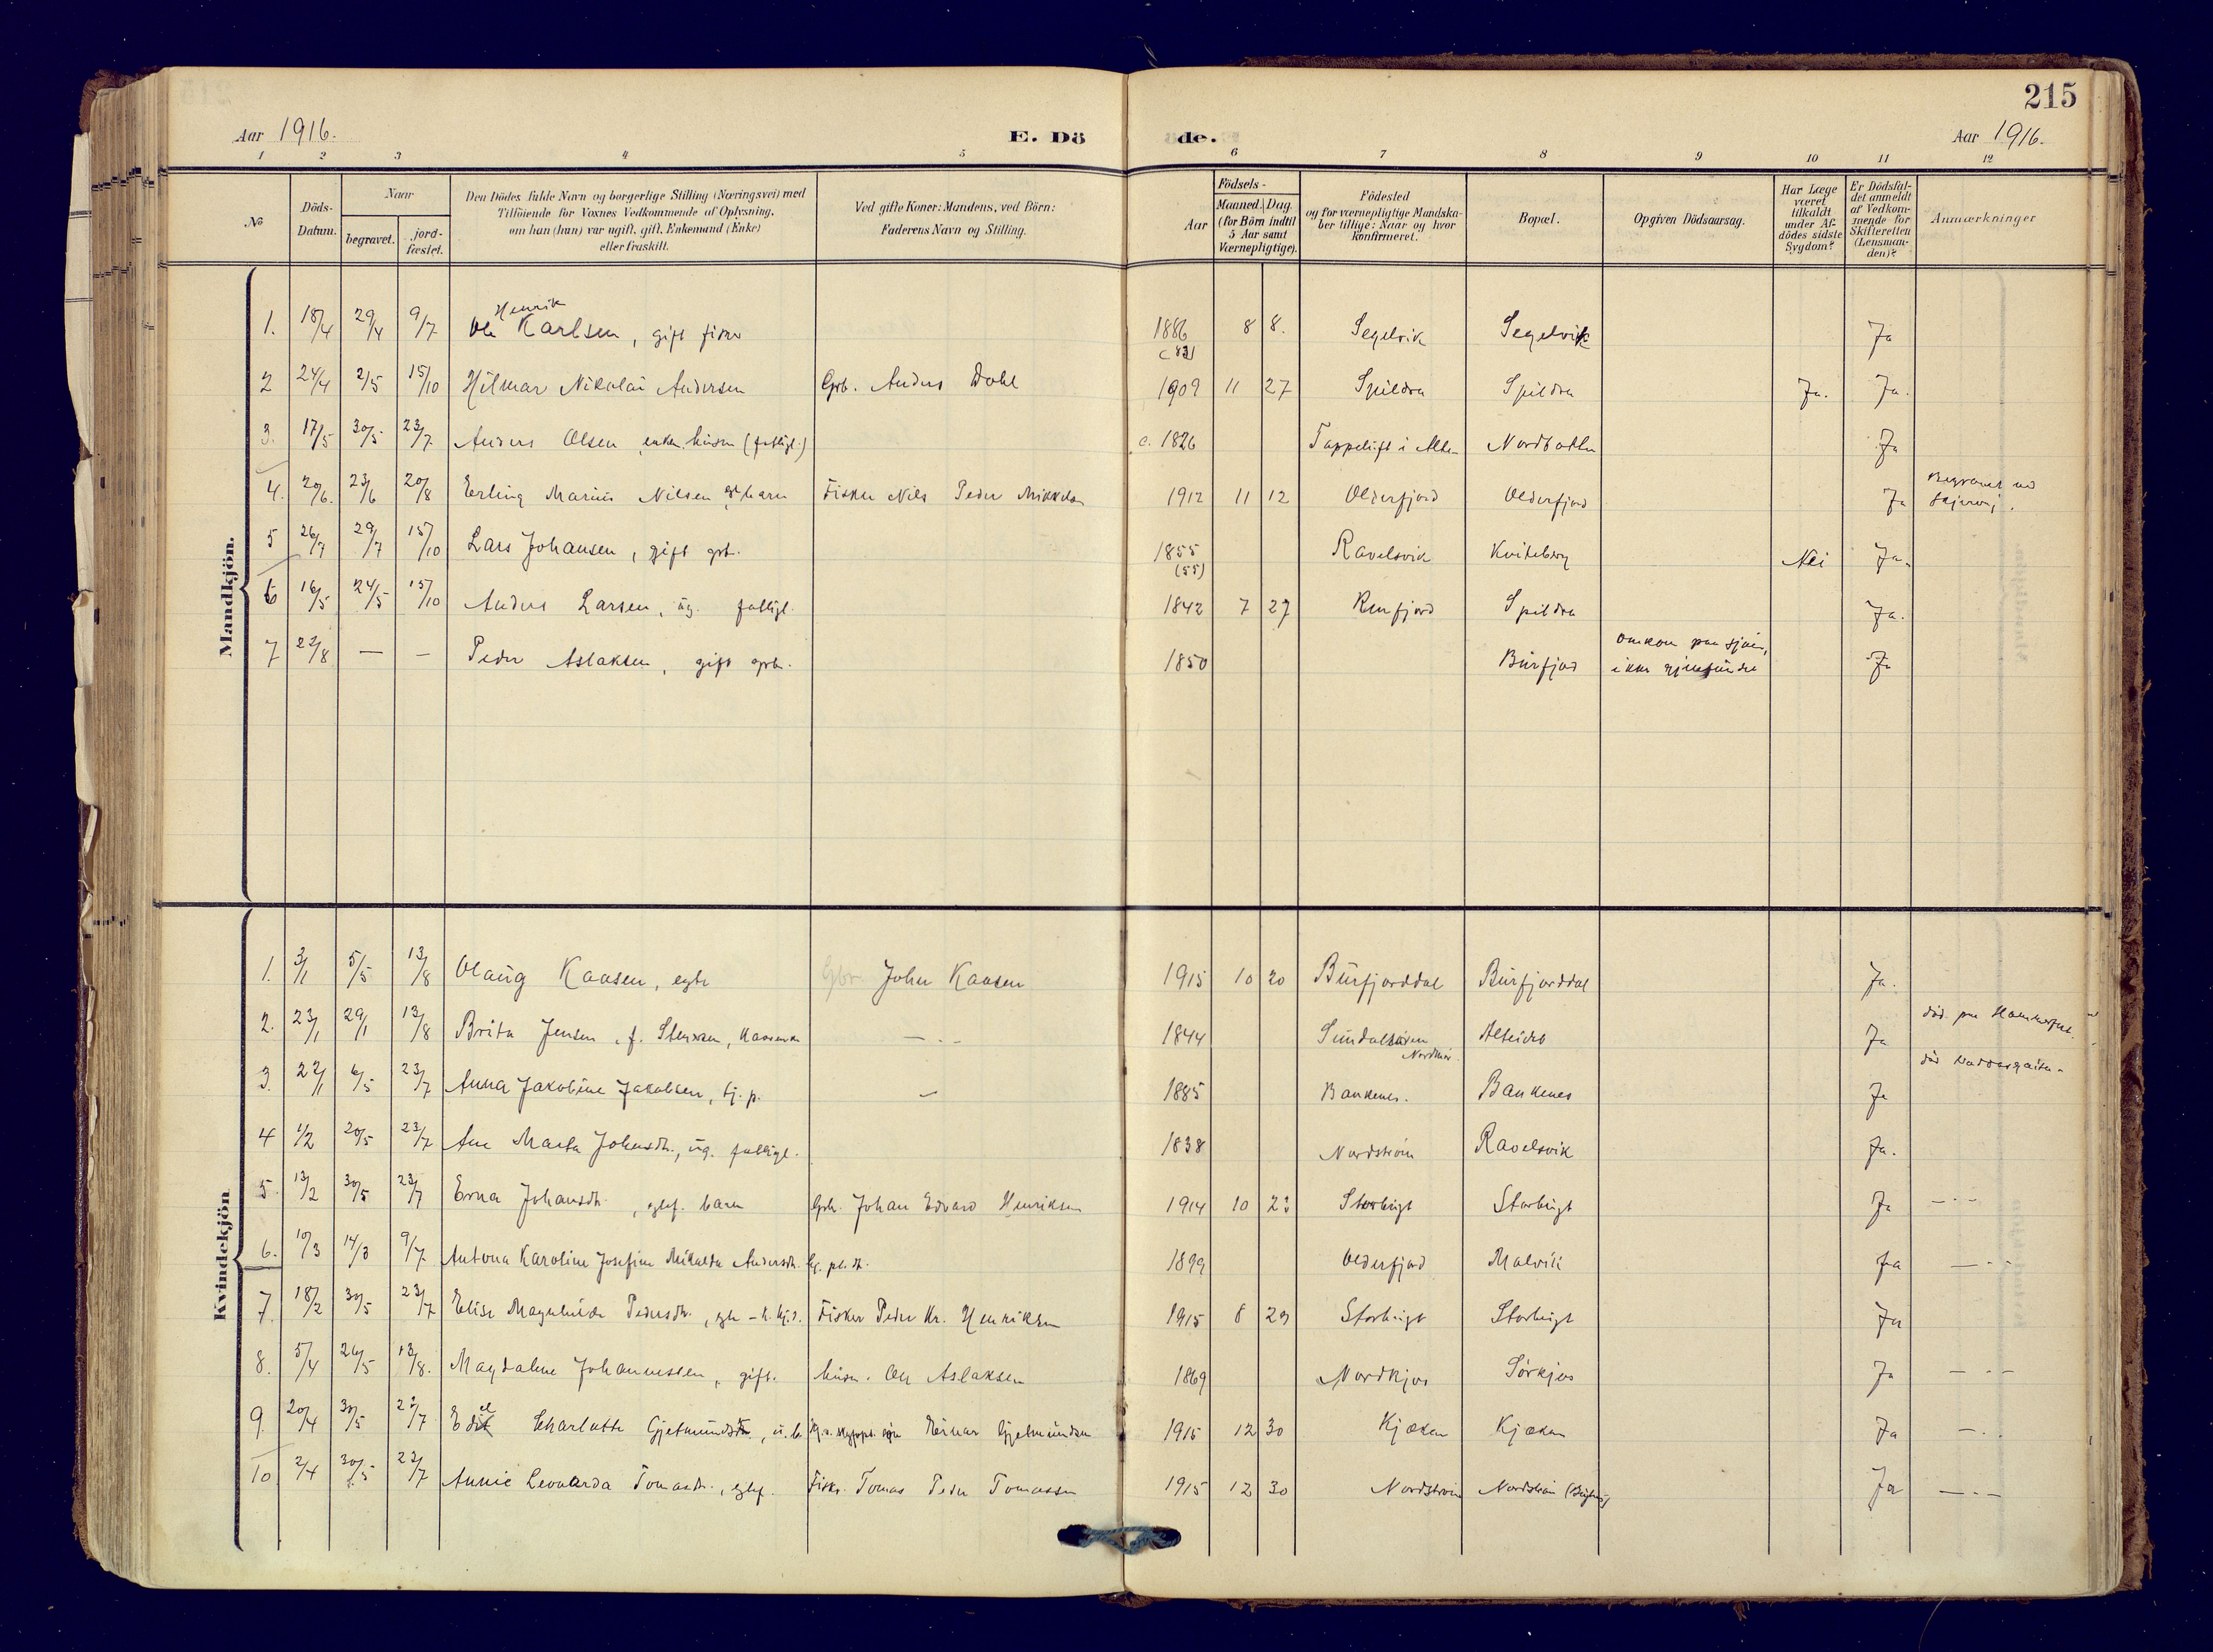 215
Aar 1916.
E. Dö
de.
Aar 1916.
1 2 3 4 5 6 7 8 9 10 11 12
No
Döds-Datum.
Naar
begravet.
jord-fæstet.
Den Dödes fulde Navn og borgerlige Stilling (Næringsvei) med
Tilföiende for Voxnes Vedkommende af Oplysning,
om han (hun) var ugift, gift, Enkemand (Enke)
eller fraskilt.
Ved gifte Koner: Mandens, ved Börn:
Faderens Navn og Stilling.
Födsels-
Aar
Maaned. Dag.
(for Börn indtil
5 Aar samt
Værnepligtige).
Födested
og for værnepligtige Mandska-
ber tillige: Naar og hvor
konfirmeret.
Bopæl.
Opgiven Dödsaarsag.
Har Læge
været
tilkaldt
under Af-
dödes sidste
Sygdom?
Er Dödsfal-
det anmeldt
af Vedkom-
mende for
Skifteretten
(Lensman-
den)?
Anmærkninger
Mandkjön.
1. 18/4 29/4 9/7 Ole Henrik Karlsen, gift fisker 1886 8 8. Segelvik Segelvik Ja
2 24/4 2/5 15/10 Hilmar Nikolai Andersen Grb. Anders Dahl 1909 11 27 Spildra Spildra Ja. Ja.
3. 17/5 30/5 23/7 Anders Olsen, enkem. husm (fattigl.) c. 1826 Tappeluft i Alten Nordbotten Ja
4. 20/6. 23/6 20/8 Erling Marius Nilsen barn Fisker Nils Peder Mikkelsen 1912 11 12 Olderfjord Olderfjord Ja Begravet ved Skjervøy.
5 26/7 29/7 15/10 Lars Johansen, gift grb. 1855 (55) Ravelsvik Kviteberg Nei Ja.
6 16/5 24/5 15/10 Anders Larsen, ug. fattigl. 1842 7 27 Spildra Ja.
7 22/8 — — Peder Aslaksen, gift grb. 1850 Burfjord omkom paa sjøen, ikke gjenfundet Ja
Kvindekjön
1. 3/1 5/5 13/8 Olaug Kaasen, egte John Kaasen 1915 10 20 Burfjorddal Burfjorddal Ja.
2. 23/1 29/1 13/8 Brita Jensen, f. — - - 1844 Sundalsøren Nordmør. Alteidet Ja død paa Hammerfest
3. 22/1 6/5 23/7 Anna Jakobine Jakobsen, tj. p. — 1885 Bankenes. Bankenes Ja
4 1/2 20/5 23/7 Ane Marta Johansdtr., ug. fattigl. 1838 Nordstrøm Ravelsvik Ja.
5. 13/2 30/5 23/7 Erna Johansdtr. barn Grb. Johan Edvard Henriksen 1914 10 Storbugt Storbugt Ja — - -
6. 10/3 14/3 9/7 Antona Karoline Josefine Mikalda Andersdtr. 1899 Olderfjord Malvik Ja — - -
7. 18/2 30/5 23/7 Elise Magnhilda Pedersdtr., Fisker Peder Kr. Henriksen 1915 8 29 Storbugt Storbugt Ja
8. 5/4 26/5 13/8. Magdalene Johannessen, gift. husm. Ole Aslaksen 1869 Nordkjos Sørkjos Ja — - -
9. 20/4 30/5 23/7 Edel Charlotte Gjetmundsdtr., Einar Gjetmundsen 1915 12 30 Kjækan Kjækan Ja — - -
10 2/4 30/5 23/7 Annie Leonarda Tomasdtr., Fisk. Tomas Peder Tomassen 1915 12 30 Nordstrøm Nordstrøm Ja — - -